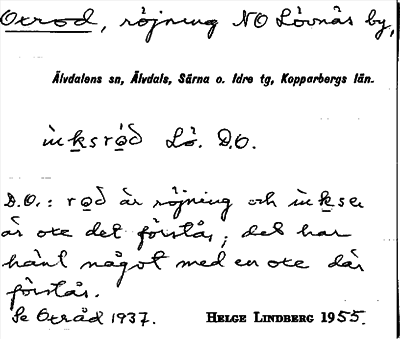 Oxrod, röjning NO Lövnäs by,
Älvdalens sn, Älvdals, Särna o. Idre tg, Kopparbergs län.
ùksròð Lö. D.O.
D.O.: ròð är röjning och ùksen
är oxe det förstås; det har
hänt något med en oxe där
förstås.
Se Oxråd 1937. HELGE LINDBERG 1955.